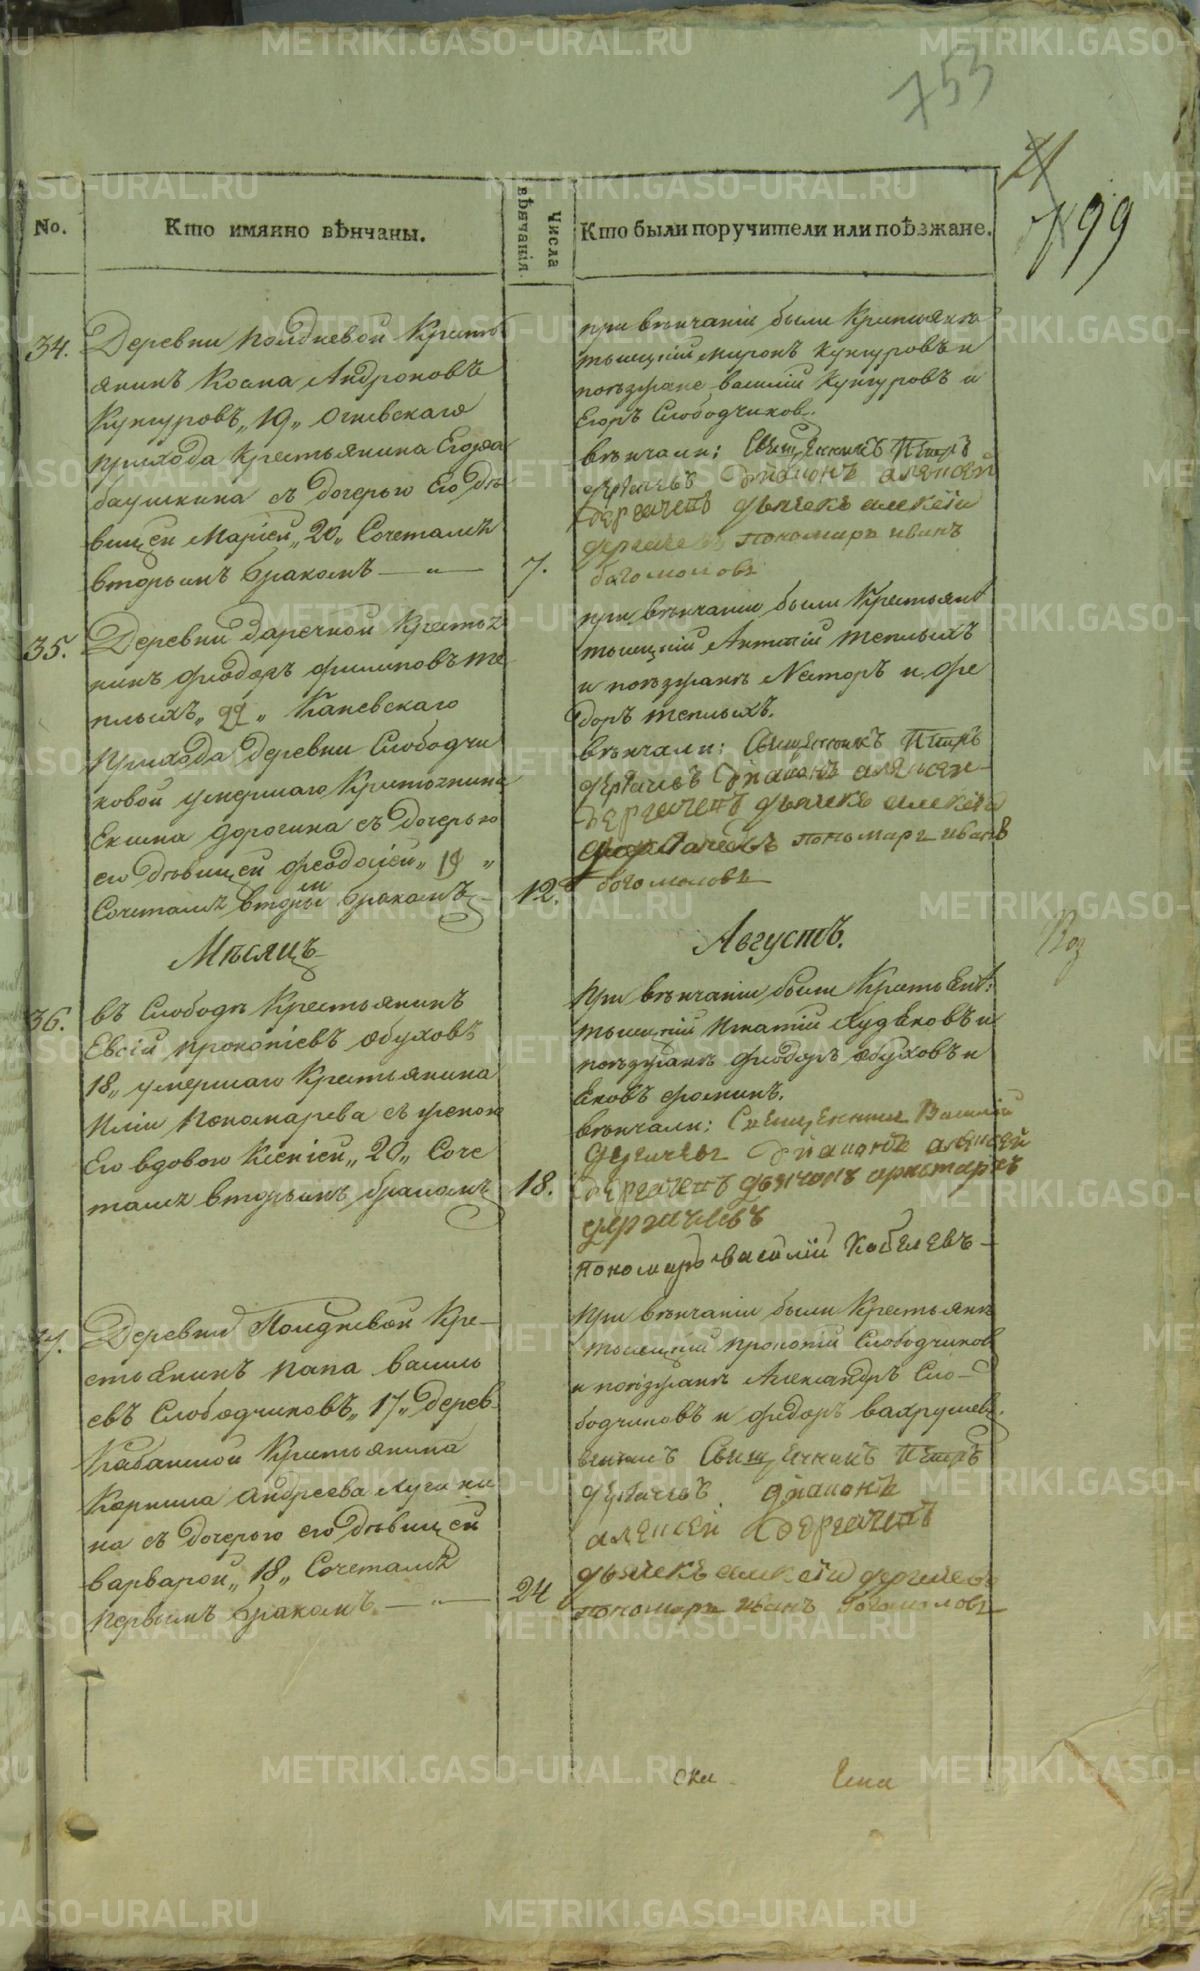 753
21
199
No.
Кто имянно вѣнчаны.
Числа вѣнчанія.
Кто были поручители или поѣзжане.
34.
Деревни Полдневой Кресть
янинъ Косма Андроновъ
Кунгуровъ „19„ Огневскаго
прихода Крестьянина Егора
баушкина съ дочерью его дѣ
вицей Маріей „20„ Сочетался
вторымъ бракомъ — „ —
7.
при вѣнчаніи были Крестьяне
тысяцкій миронъ Кунгуровъ и
поѣзжане василій Кунгуровъ и
Егоръ Слободчиковъ.
вѣнчали: Священникъ Петръ
Дергачевъ Діаконъ алексей
Дергачевъ дьячекъ алексій
дергачевъ пономарь иванъ
богомоловъ
35.
Деревни Заречной Кресть
нинъ Феодоръ Филиповъ те
плыхъ „22„ Каневскаго
прихода Деревни Слободчи
ковой умершаго Крестьянина
Екима Дорогина съ дочерью
его дѣвицей феодосіей „19„
Сочетался вторым бракомъ
12.
при вѣнчаніи были Крестьяне
тысяцкій теплыхъ
и поѣзжане Несторъ и Фе
доръ теплыхъ.
вѣнчали: Священникъ Петръ
Дергачевъ Діаконъ алексеи
Дергачевъ дьячекъ алексій
Дергачевъ пономарь иванъ
богомоловъ
Мѣсяцъ
Августъ.
36.
въ Слободѣ Крестьянинъ
Евсій прокопіевъ обуховъ
18„ умершаго Крестьянина
Иліи Пономарева съ женою
Его вдовою Ксеніей „20„ Соче
тался вторымъ бракомъ
18.
При вѣнчаніи были Крестьяне:
тысяцкій Игнатій Худяковъ и
поѣзжане Феодоръ обуховъ и
Яковъ фоминъ.
вѣнчали: Священникъ Василій
Дергачевъ Діаконъ алексей
Дергачевъ дьячокъ аристархъ
Дергачевъ
пономарь василій Кобелевъ —
Деревни Полдневой Кре—
стьянинъ папа василь
евъ Слободчиковъ „17„ Дерев
Кабанской Крестьянина
Корнила андреева
на съ дочерью его дѣвицей
варварой „18„ Сочетался
первымъ бракомъ. — „ —
24
При вѣнчаніи были Крестьяне
тысяцкій прокопій Слободчиков
и поѣзжане Александръ Сло—
бодчиковъ и Федоръ вахрушевъ.
вѣнчалъ Священникъ Петръ
Дергачевъ діаконъ
алексей Дергачевъ
дьячекъ алексій дергачевъ
пономарь иванъ богомоловъ